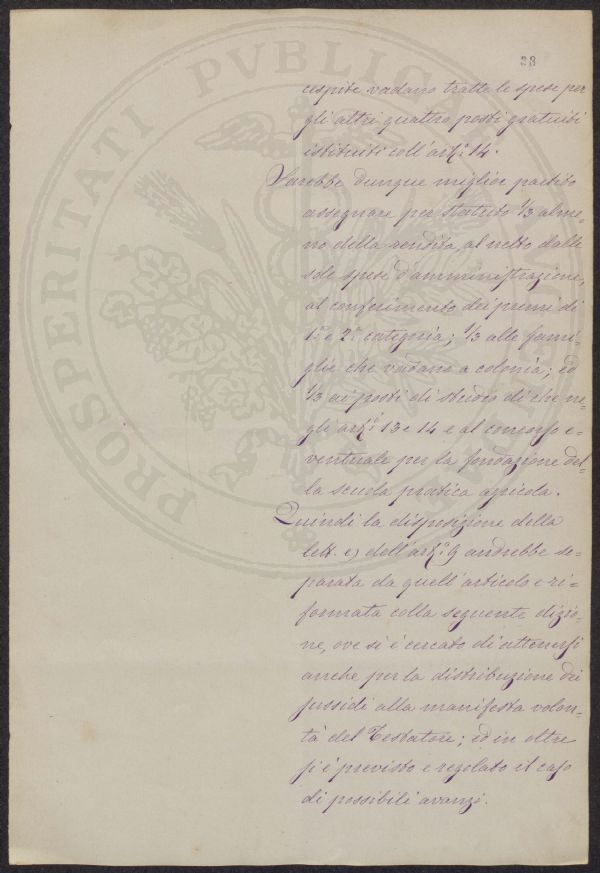 38
PROSPERITATI PVBLICAE
cespite vadano tratte le spese per
gli altri quattro posti gratuiti
istituiti coll'art.° 14.
Sarebbe dunque miglior partito
assegnare per statuto 1/3 alme-
no della rendita, al netto dalle
sole spese d'amministrazione,
al conferimento dei premi di
1.a e 2.a categoria; 1/3 alle fami-
glie che vadano a colonia; ed
1/3 ai posti di studio di che ne-
gli art.i 13 e 14 e al concorso e-
ventuale per la fondazione del-
la scuola pratica agricola.
Quindi la disposizione della
lett. e) dell'art.° 9 andrebbe se-
parata da quell'articolo e ri-
formata colla seguente dizio-
ne, ove si è cercato di attenersi
anche per la distribuzione dei
sussidi alla manifesta volon-
tà del Testatore; ed in oltre
si è previsto e regolato il caso
di possibili avanzi.